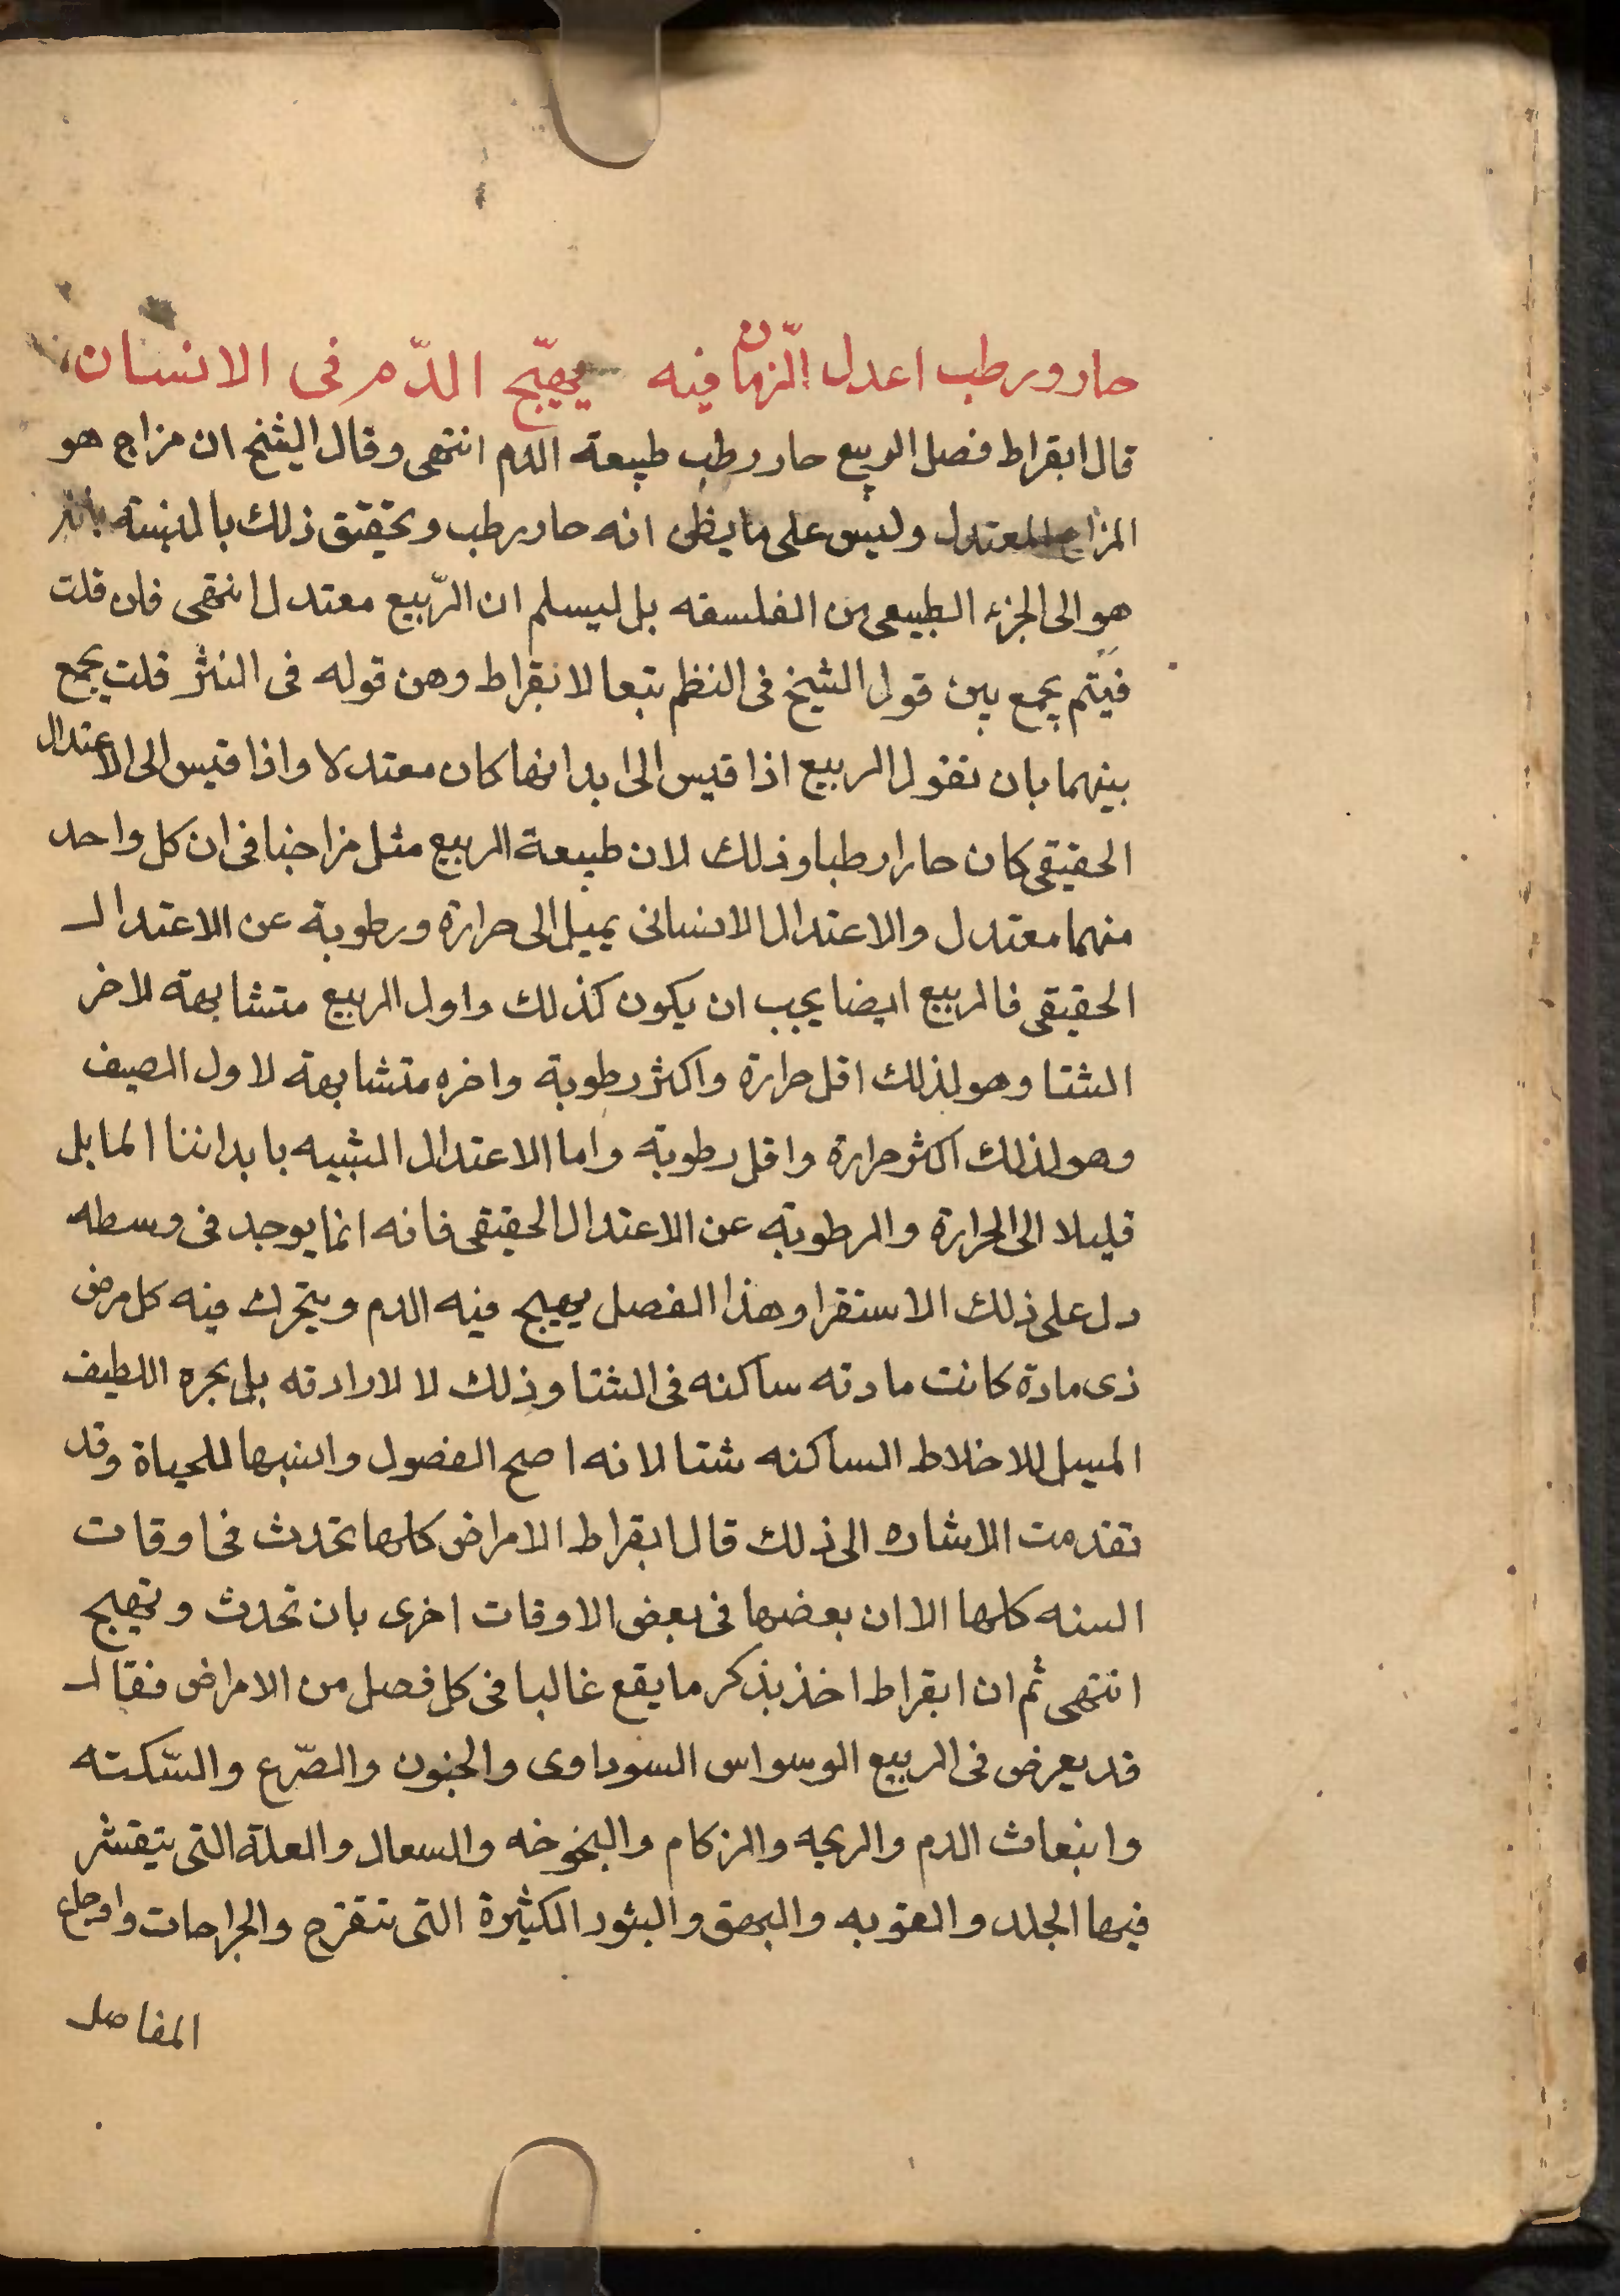 حار ورطب اعدل الزمان فيه يهيّج الدّم فى الانسان
قال ابقراط فصل الربيع حار رطب طبيعة الدم انتهى وقال الشيخ ان مزاج هو
المزاج المعتدل وليس على ما يظن انه حار رطب وتحقيق ذلك بالمنسبته
هو الى الجزء الطبيعى من الفلسفه بل ليسلم ان الرّبيع معتدل انتهى فان قلت
فيتم يجمع بين قول الشيخ فى النظم تبعا لابقراط وهن قوله فى النثر قلت يجمع
بينهما بان نقول الربيع اذا قيس الى ابداننا كان معتدلا واذا قيس الى الاعتدال
الحقيقى كان حارا رطبا وذلك لان طبيعة الربيع مثل مزاجنا فى ان كل واحد
منهما معتدل والاعتدال الانسانى يميل الى حرارة ورطوبة عن الاعتدال
الحقيقى فالربيع ايضا يجب ان يكون كذلك واول الربيع متشابهة لاخر
الشتا وهو لذلك اقل حرارة واكثر رطوبة واخره متشابهة لاول الصيف
وهو لذلك اكثر حرارة واقل رطوبة واما الاعتدال الشبيه بابداننا المايل
قليلا الى الحرارة والرطوبة عن الاعتدال الحقيقى فانه انما يوجد فى وسطه
دل على ذلك الاستقرا وهذا الفصل يهيج فيه الدم ويتحرك فيه كل مرض
ذى مادة كانت مادته ساكنه فى الشتا وذلك لا لارادته بل بحره اللطيف
المسيل للاخلاط الساكنه شتا لانه اصح الفصول وانسبها للحياة وقد
تقدمت الاشاره الى ذلك قال ابقراط الامراض كلها تحدث فى اوقات
السنه كلها الا ان بعضها فى بعض الاوقات اخرى بان تحدث وتهيج
انتهى ثم ان ابقراط اخذ بذكر ما يقع غالبا فى كل فصل من الامراض فقال
قد يعرض فى الربيع الوسواس السوداوى والجنون والصّرع والسّكته
وانبعاث الدم والربحه والزكام والبخوخه والسعال والعلة التى يتقشر
فيها الجلد والقوبه والبهق والبثور الكثيرة التى تتقرح والجراحات واوجاع
المفاصل